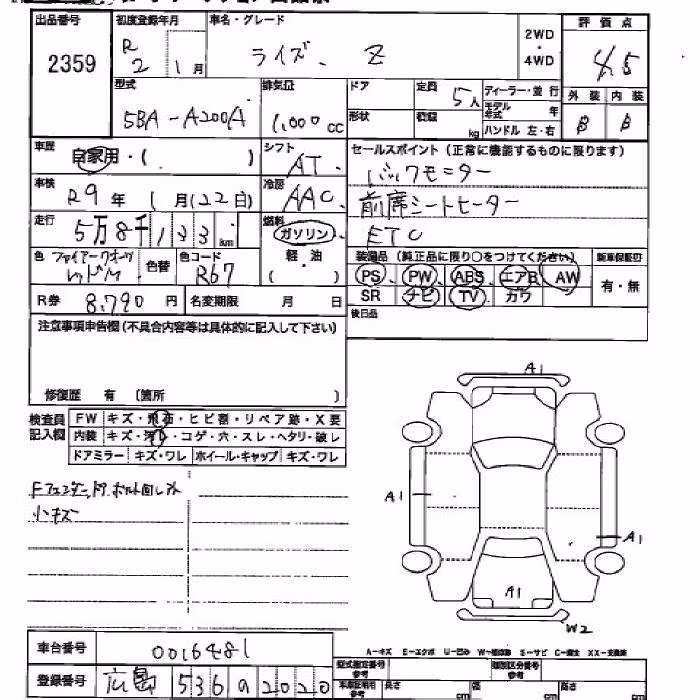 出品番号 初度登録年月 車名・グレード 2WD・4WD 評価点
2359 R2 1月 ライズ、Z 4.5
型式 排気量 ドア 定員 ディーラー・並行 外装 内装
5BA-A200A 1,000cc 5人 モデル年式 年 B B
形状 積載 kg ハンドル 左・右
車歴 シフト セールスポイント（正常に機能するものに限ります）
自家用・( ) AT バックモニター
車検 R9年 1月(22日) 冷房 AAC 前席シートヒーター
走行 5万8千133km 燃料 ガソリン ETC
色 色替 色コード 軽・油 装備品（純正品に限り○をつけてください） 新車保証書
レッドM R67 ( ) PS PW ABS エアB AW 有・無
R券 8,790円 名変期限 月 日 SR ナビ TV カワ
後日品
注意事項申告欄（不具合内容等は具体的に記入して下さい）
修復歴 有 〔箇所 〕
検査員 FW キズ・飛石・ヒビ割・リペア跡・X要
記入欄 内装 キズ・汚れ・コゲ・穴・スレ・ヘタリ・破レ
ドアミラー キズ・ワレ ホイール・キャップ キズ・ワレ
小キズ
A1
A1
A1
A1
W2
車台番号 0016481
登録番号 広島 536 2020
A-キズ E-エクボ U-凹み S-サビ C-腐食 XX-交換済
型式指定番号 参考 類別区分番号 参考
長さ cm 幅 cm 高さ cm